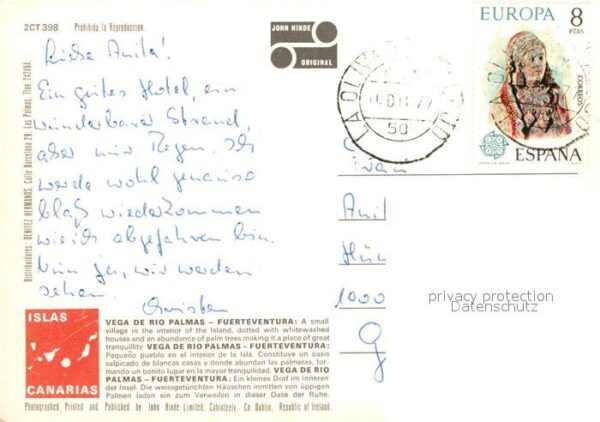 2CT398 Prohibida la Reproduccion.
JOHN HINDE
ORIGINAL
EUROPA 8
PTAS
CORREOS
ESPAÑA
LA OLIVA
50
Liebe Anita!
Ein gutes Hotel, ein
wunderbarer Strand,
aber nur Regen. Ich
werde wohl genauso
blaß wiederkommen
wie ich abgefahren bin.
Nun ja, wir werden
sehen.
1000
privacy protection
Datenschutz
Distribuidores: BENITEZ HERMANOS, Calle Barcelona 29, Las Palmas, Tfno 242464.
ISLAS
CANARIAS
VEGA DE RIO PALMAS – FUERTEVENTURA: A small
village in the interior of the Island, dotted with whitewashed
houses and an abundance of palm trees making it a place of great
tranquillity VEGA DE RIO PALMAS – FUERTEVENTURA:
Pequeño pueblo en el interior de la Isla. Constituye un oasis
salpicado de blancas casas y donde abundan las palmeras, for-
mando un bonito lugar en la mayor tranquilidad. VEGA DE RIO
PALMAS – FUERTEVENTURA: Ein kleines Dorf im Inneren
der Insel. Die weissgetünchten Häuschen inmitten von üppigen
Palmen laden ein zum Verweilen in dieser Oase der Ruhe.
Photographed, Printed and Published by John Hinde Limited, Cabinteely, Co Dublin, Republic of Ireland.